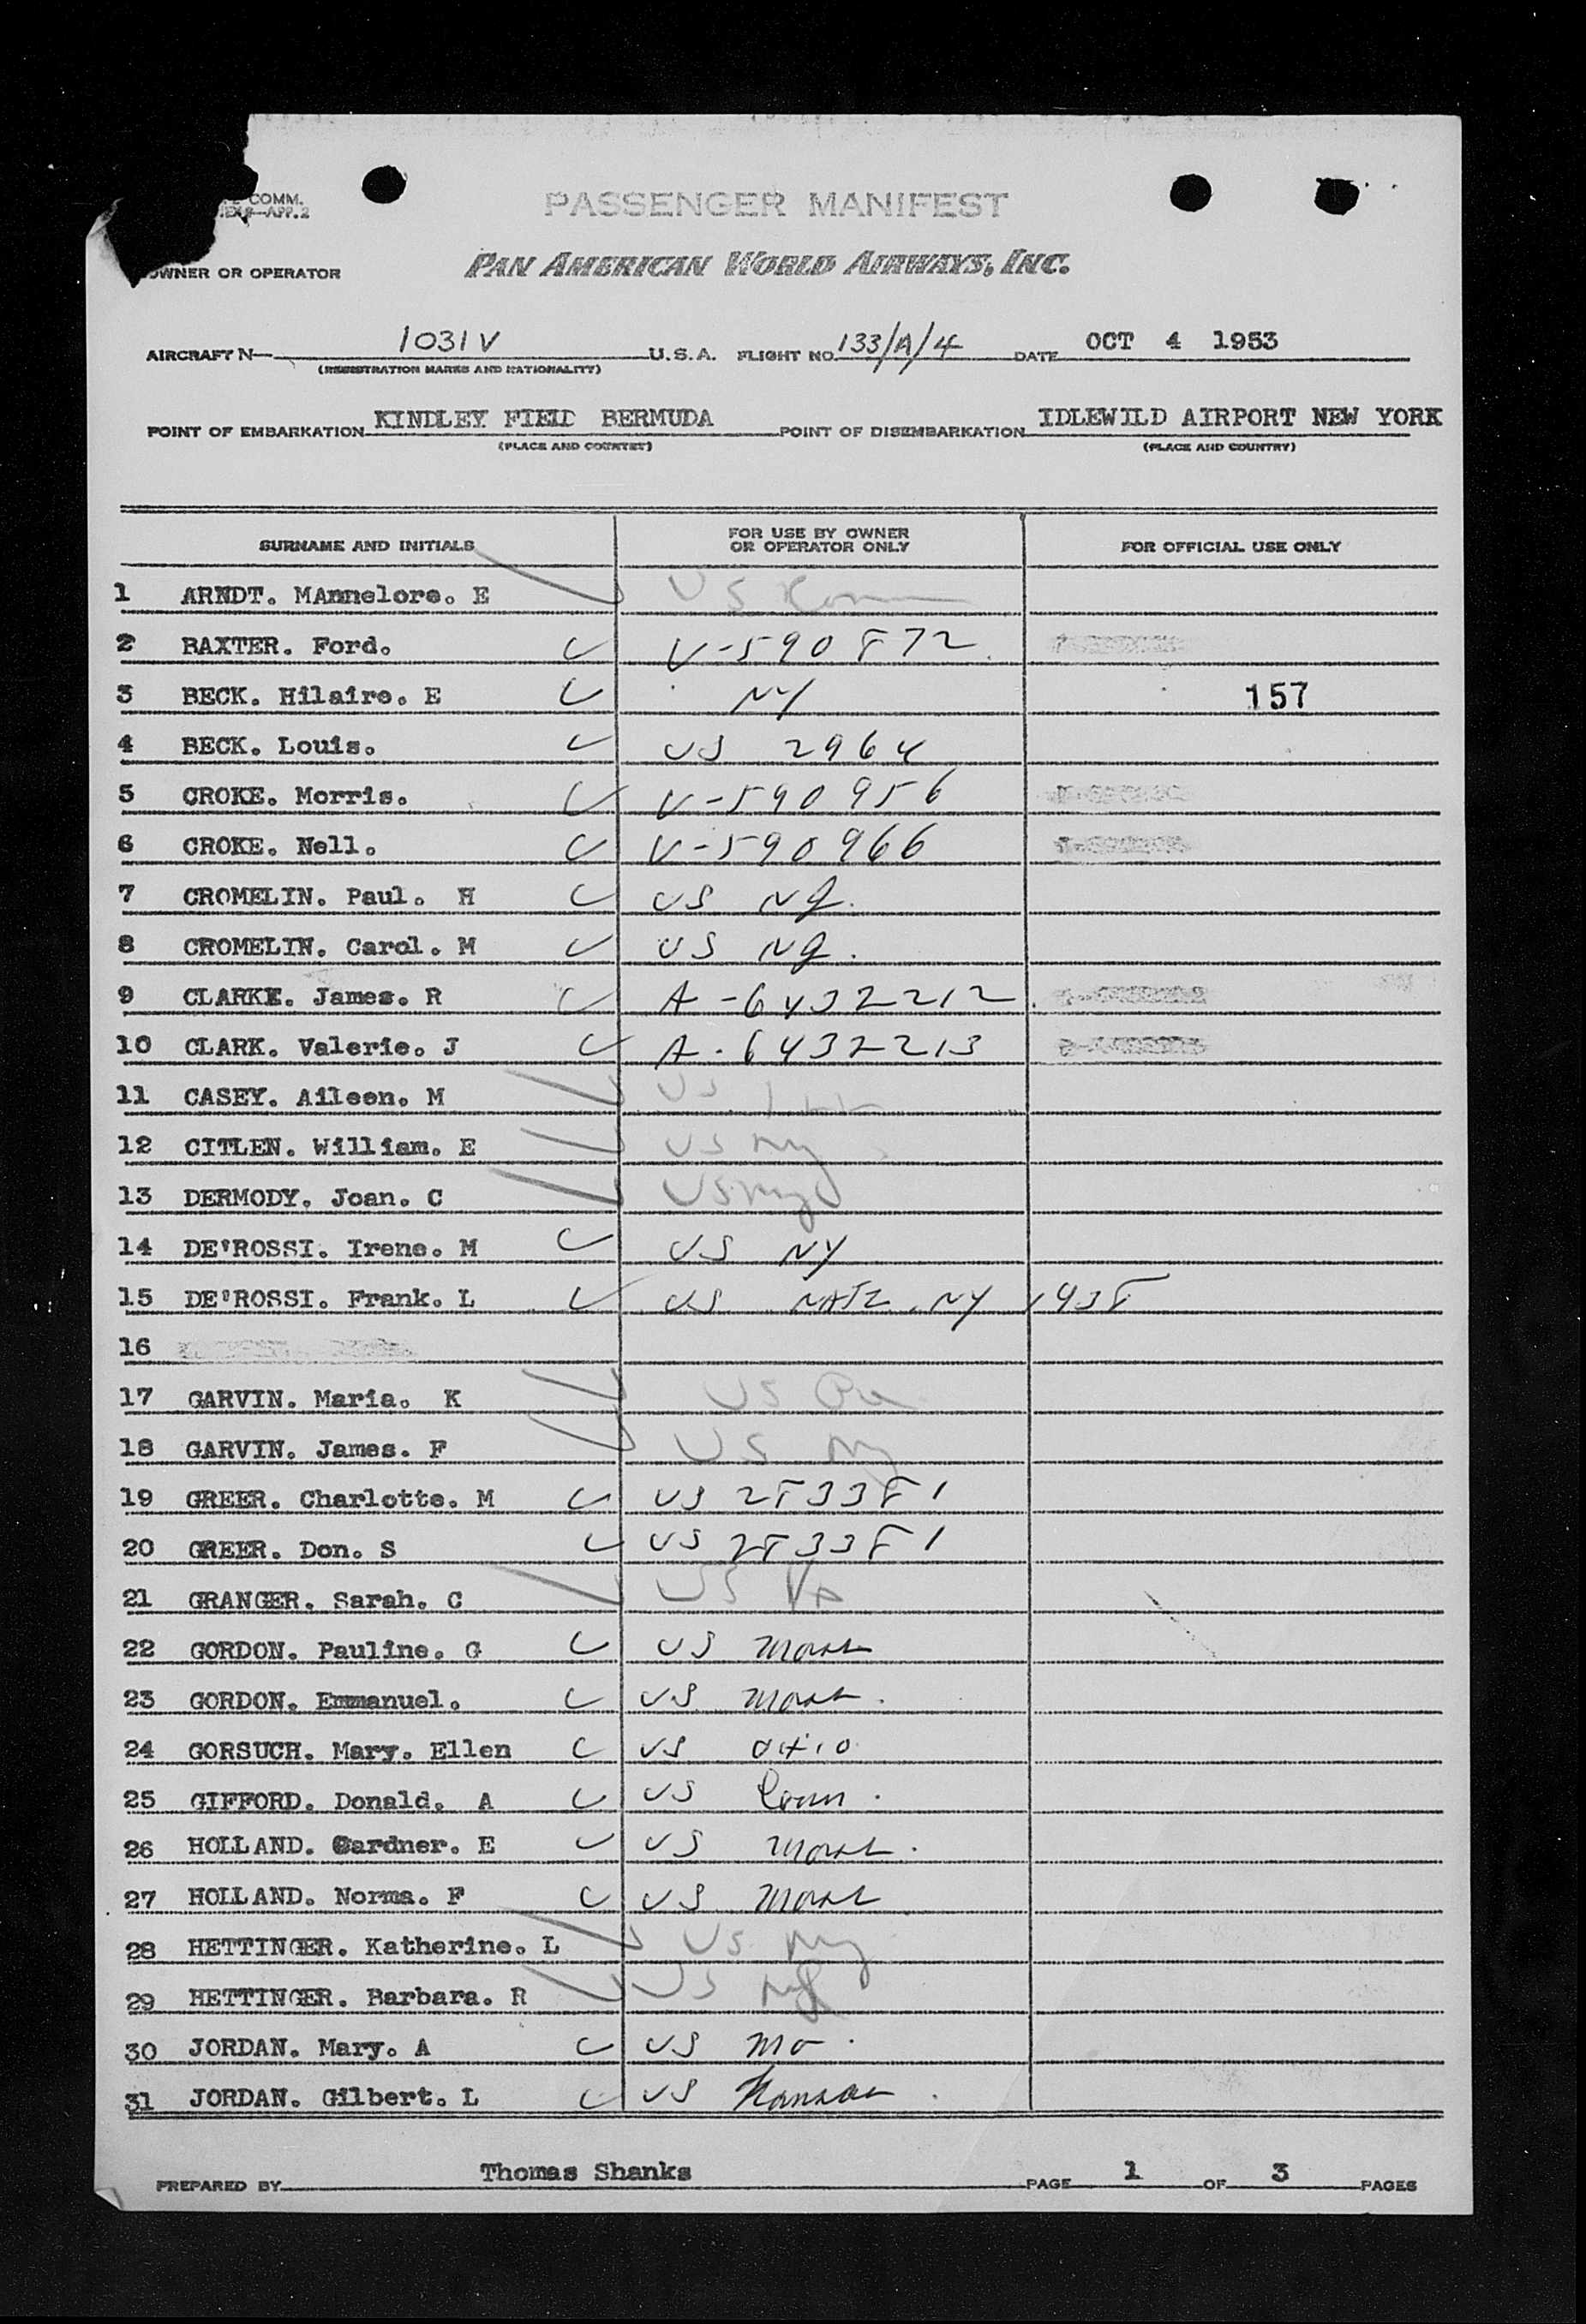 COMM.
APP.2
PASSENGER MANIFEST
OWNER OR OPERATOR PAN AMERICAN WORLD AIRWAYS, INC.
AIRCRAFT N— 1031V U.S.A. FLIGHT NO. 133/A/4 DATE OCT 4 1953
(REGISTRATION MARKS AND NATIONALITY)
POINT OF EMBARKATION KINDLEY FIELD BERMUDA POINT OF DISEMBARKATION IDLEWILD AIRPORT NEW YORK
(PLACE AND COUNTRY) (PLACE AND COUNTRY)
SURNAME AND INITIALS FOR USE BY OWNER OR OPERATOR ONLY FOR OFFICIAL USE ONLY
1 ARNDT. MAnnelore. E US Conn
2 BAXTER. Ford. V-590872
3 BECK. Hilaire. E NY 157
4 BECK. Louis. US 2964
5 CROKE. Morris. V-590956
6 CROKE. Nell. V-590966
7 CROMELIN. Paul. H US NJ.
8 CROMELIN. Carol. M US NJ.
9 CLARKE. James. R A-6432212
10 CLARK. Valerie. J A-6432213
11 CASEY. Aileen. M US
12 CITLEN. William. E US NY
13 DERMODY. Joan. C US NY
14 DE'ROSSI. Irene. M US NY
15 DE'ROSSI. Frank. L US NATZ. NY 1938
16
17 GARVIN. Maria. K US Pa
18 GARVIN. James. F US NY
19 GREER. Charlotte. M US 283381
20 GREER. Don. S US 283381
21 GRANGER. Sarah. C US Va
22 GORDON. Pauline. G US Mass
23 GORDON. Emmanuel. US Mass.
24 GORSUCH. Mary. Ellen US OHIO
25 GIFFORD. Donald. A US Conn.
26 HOLLAND. Gardner. E US Mass.
27 HOLLAND. Norma. F US Mass
28 HETTINGER. Katherine. L US NY
29 HETTINGER. Barbara. R US
30 JORDAN. Mary. A US Mo.
31 JORDAN. Gilbert. L US Kansas.
PREPARED BY Thomas Shanks PAGE 1 OF 3 PAGES